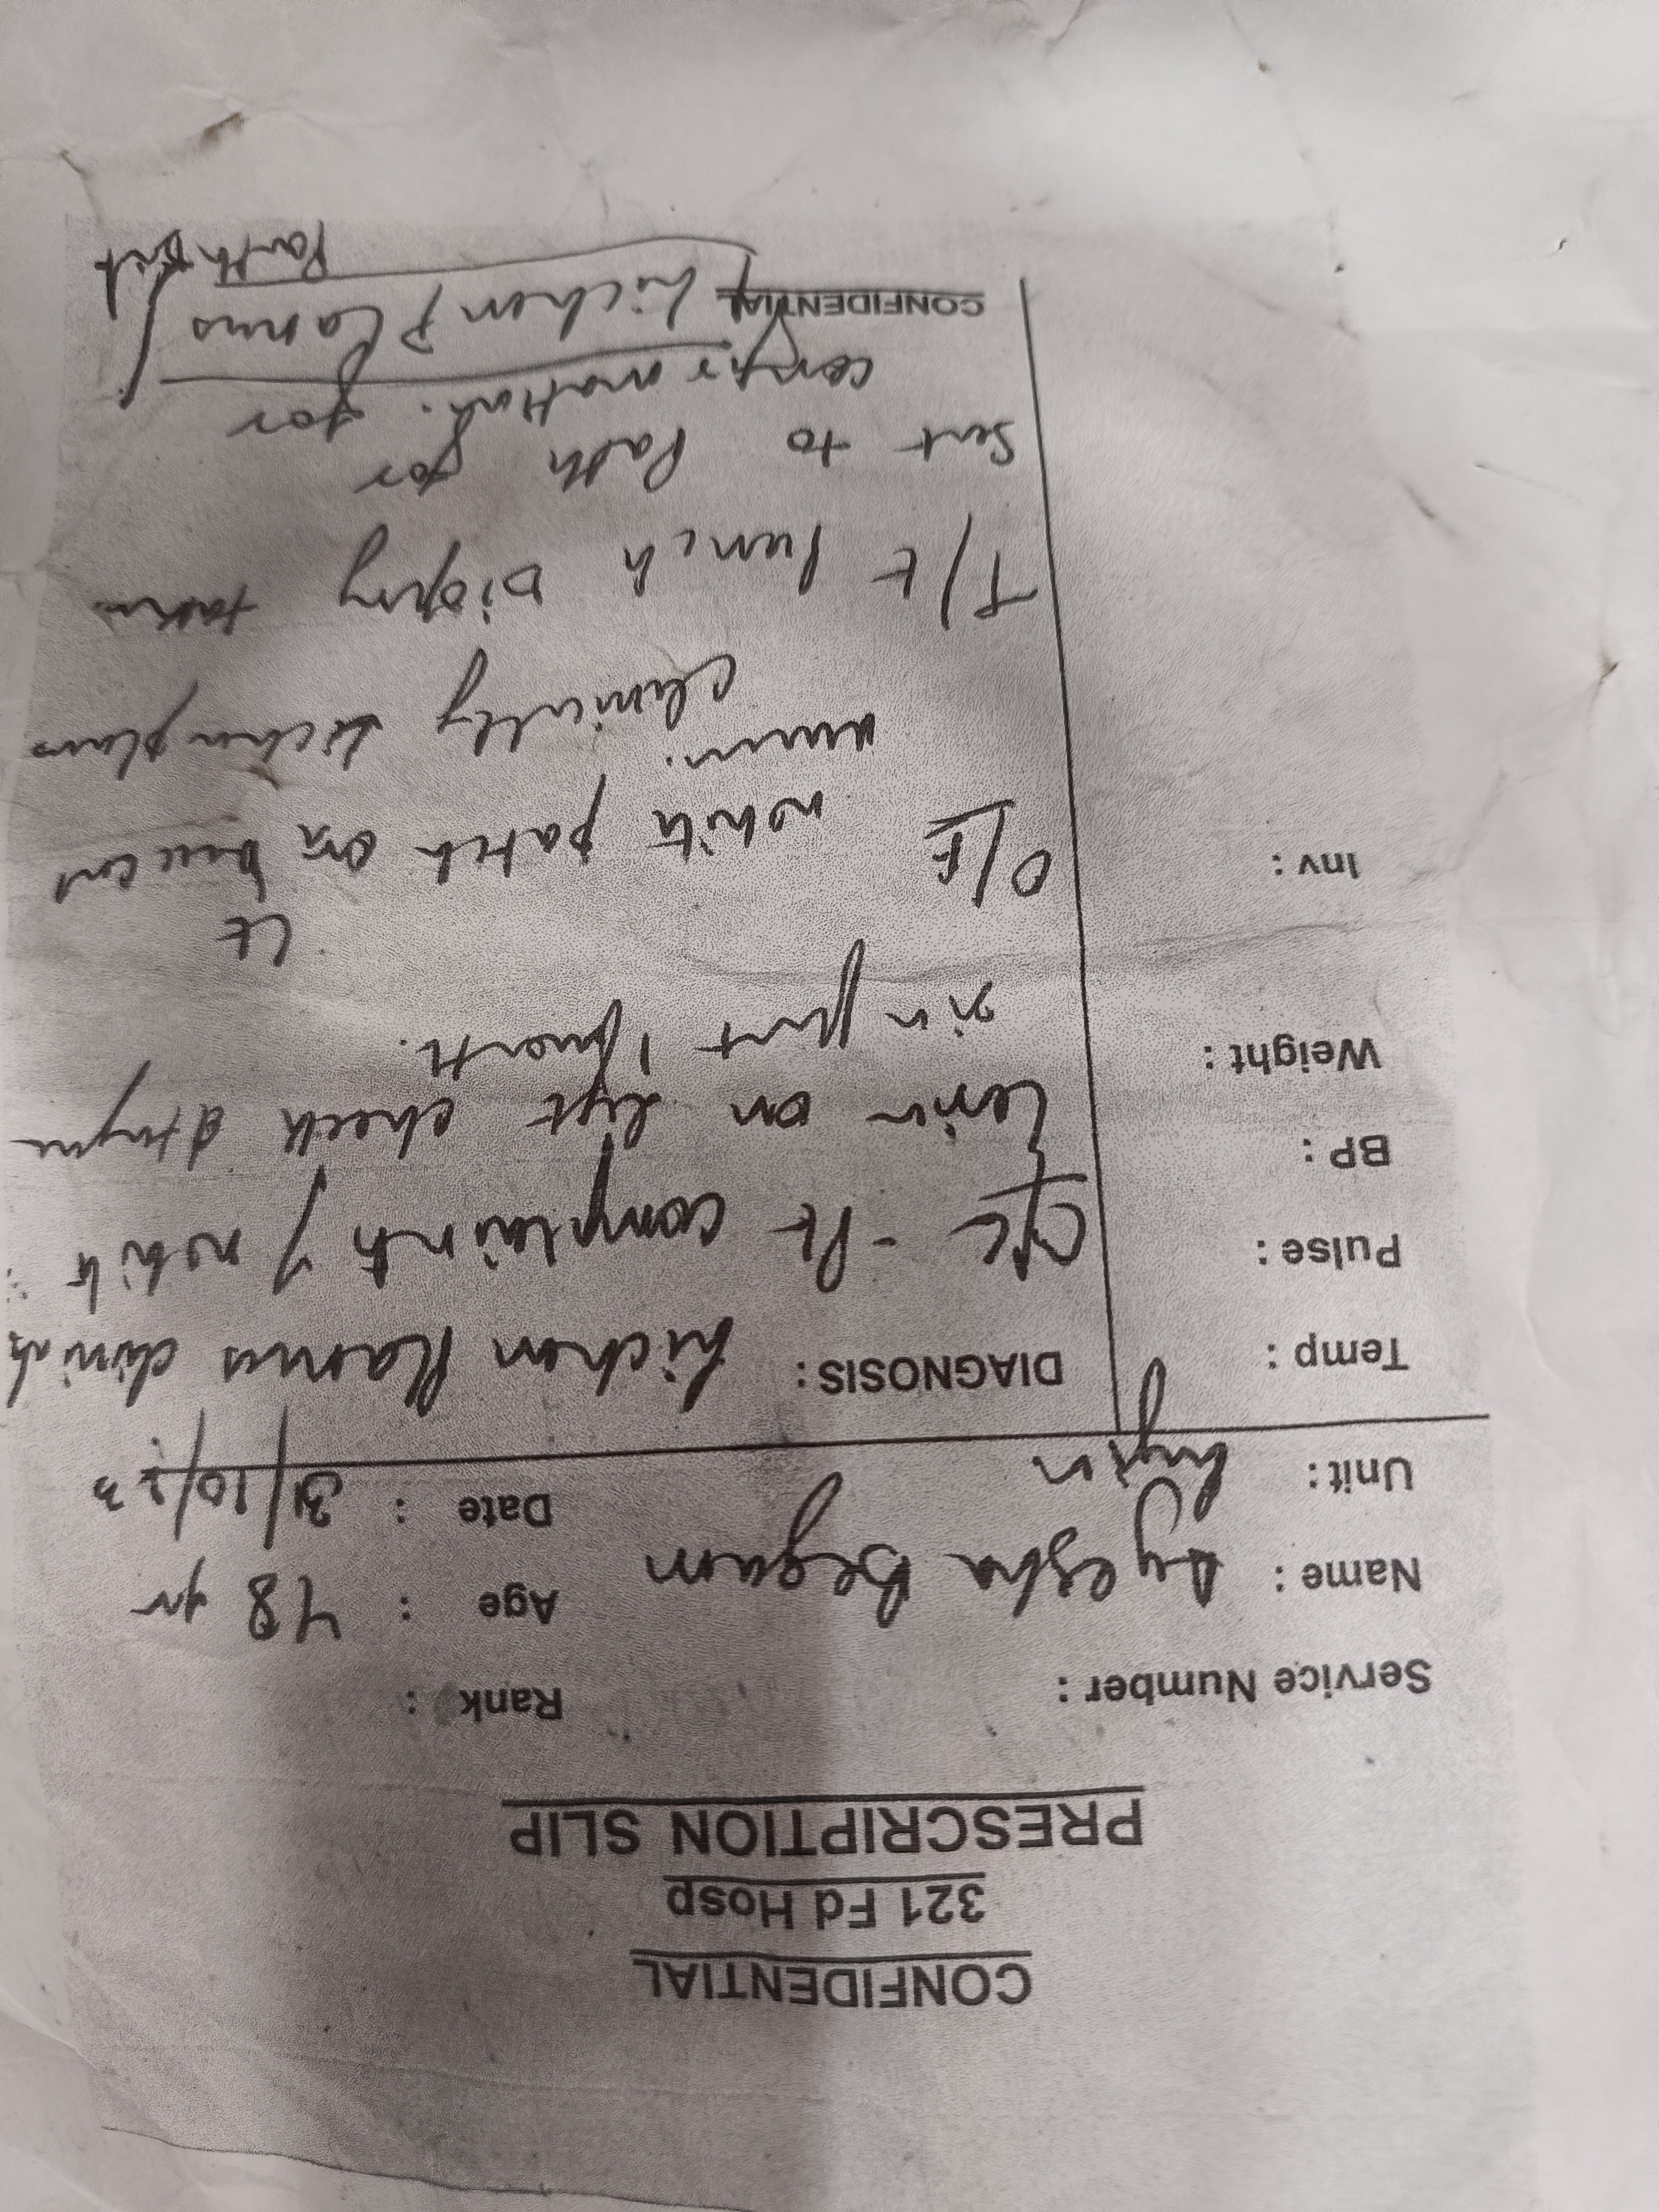 CONFIDENTIAL
321 Fd Hosp
PRESCRIPTION SLIP
Service Number : Rank :
Name : Ayesha Begum Age : 48 yr
Unit : Date : 31/10/23
Temp : DIAGNOSIS : Lichen Planus
Pulse : C/C - Pt complaint of white
BP : on left cheek
Weight : sin past 1 month.
Lt
Inv : O/E white patch on
Clinically Lichen plans
T/t Punch Biopsy taken
Sent to Path for
confirmation. for
CONFIDENTIAL Lichen Planus